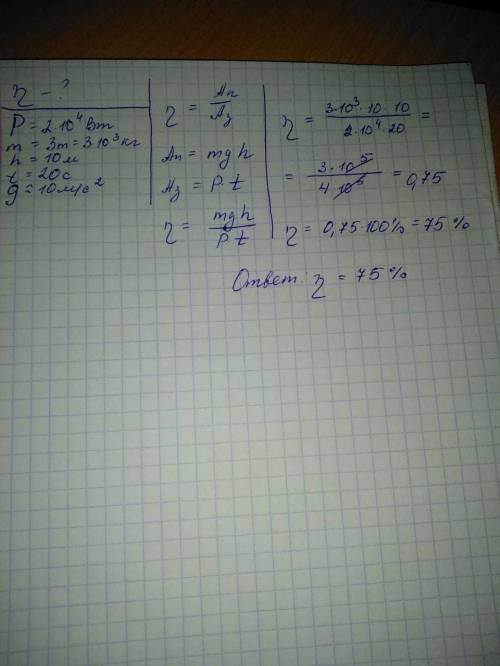 η - ?
P = 2·10⁴ Вт
m = 3т = 3·10³ кг
h = 10 м
t = 20 с
g = 10 м/с²
η = Aп/Aз
Aп = mgh
Aз = P·t
η = mgh/Pt
η = 3·10³·10·10/2·10⁴·20 =
= 3·10⁵/4·10⁵ = 0,75
η = 0,75·100% = 75 %
Ответ: η = 75 %